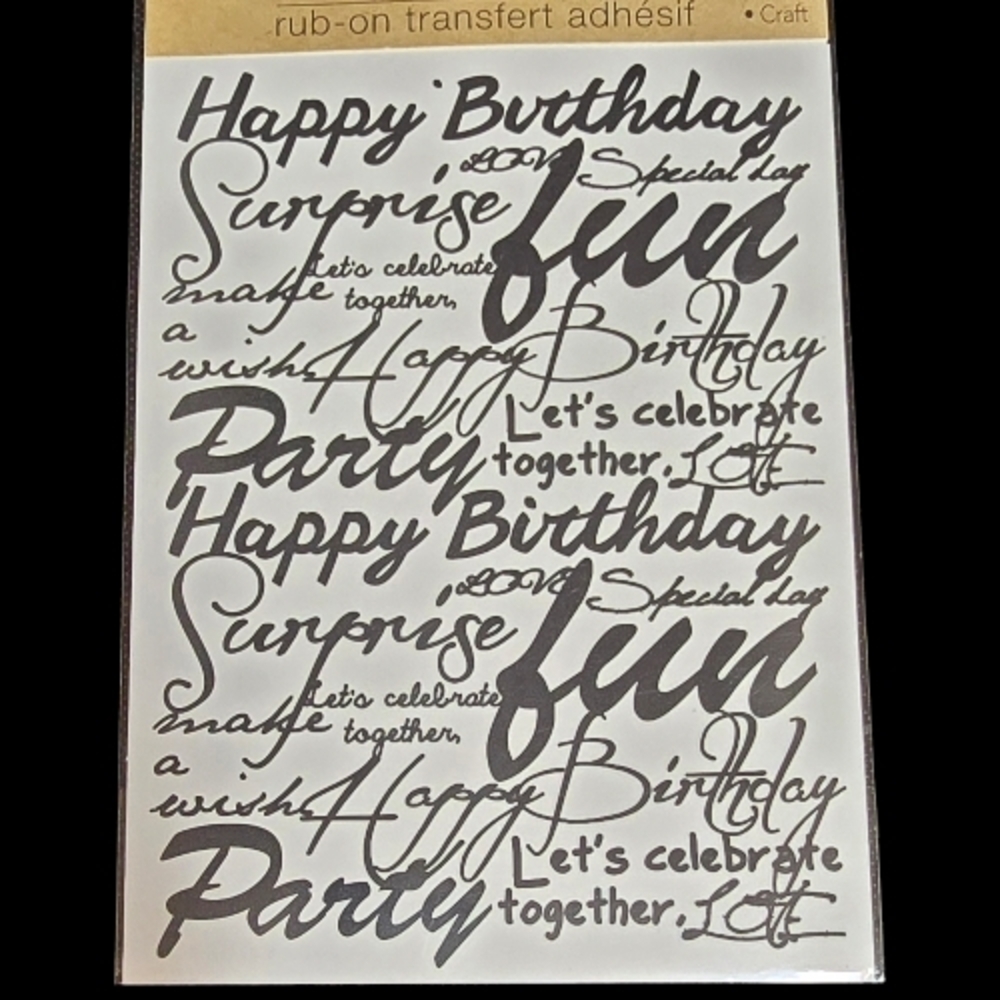 rub-on transfert adhésif • Craft
Happy Birthday
LOVE Special day
Surprise fun
Let's celebrate
make together,
a
wish Happy Birthday
Party Let's celebrate
together. LOVE
Happy Birthday
LOVE Special day
Surprise fun
Let's celebrate
make together,
a
wish Happy Birthday
Party Let's celebrate
together. LOVE